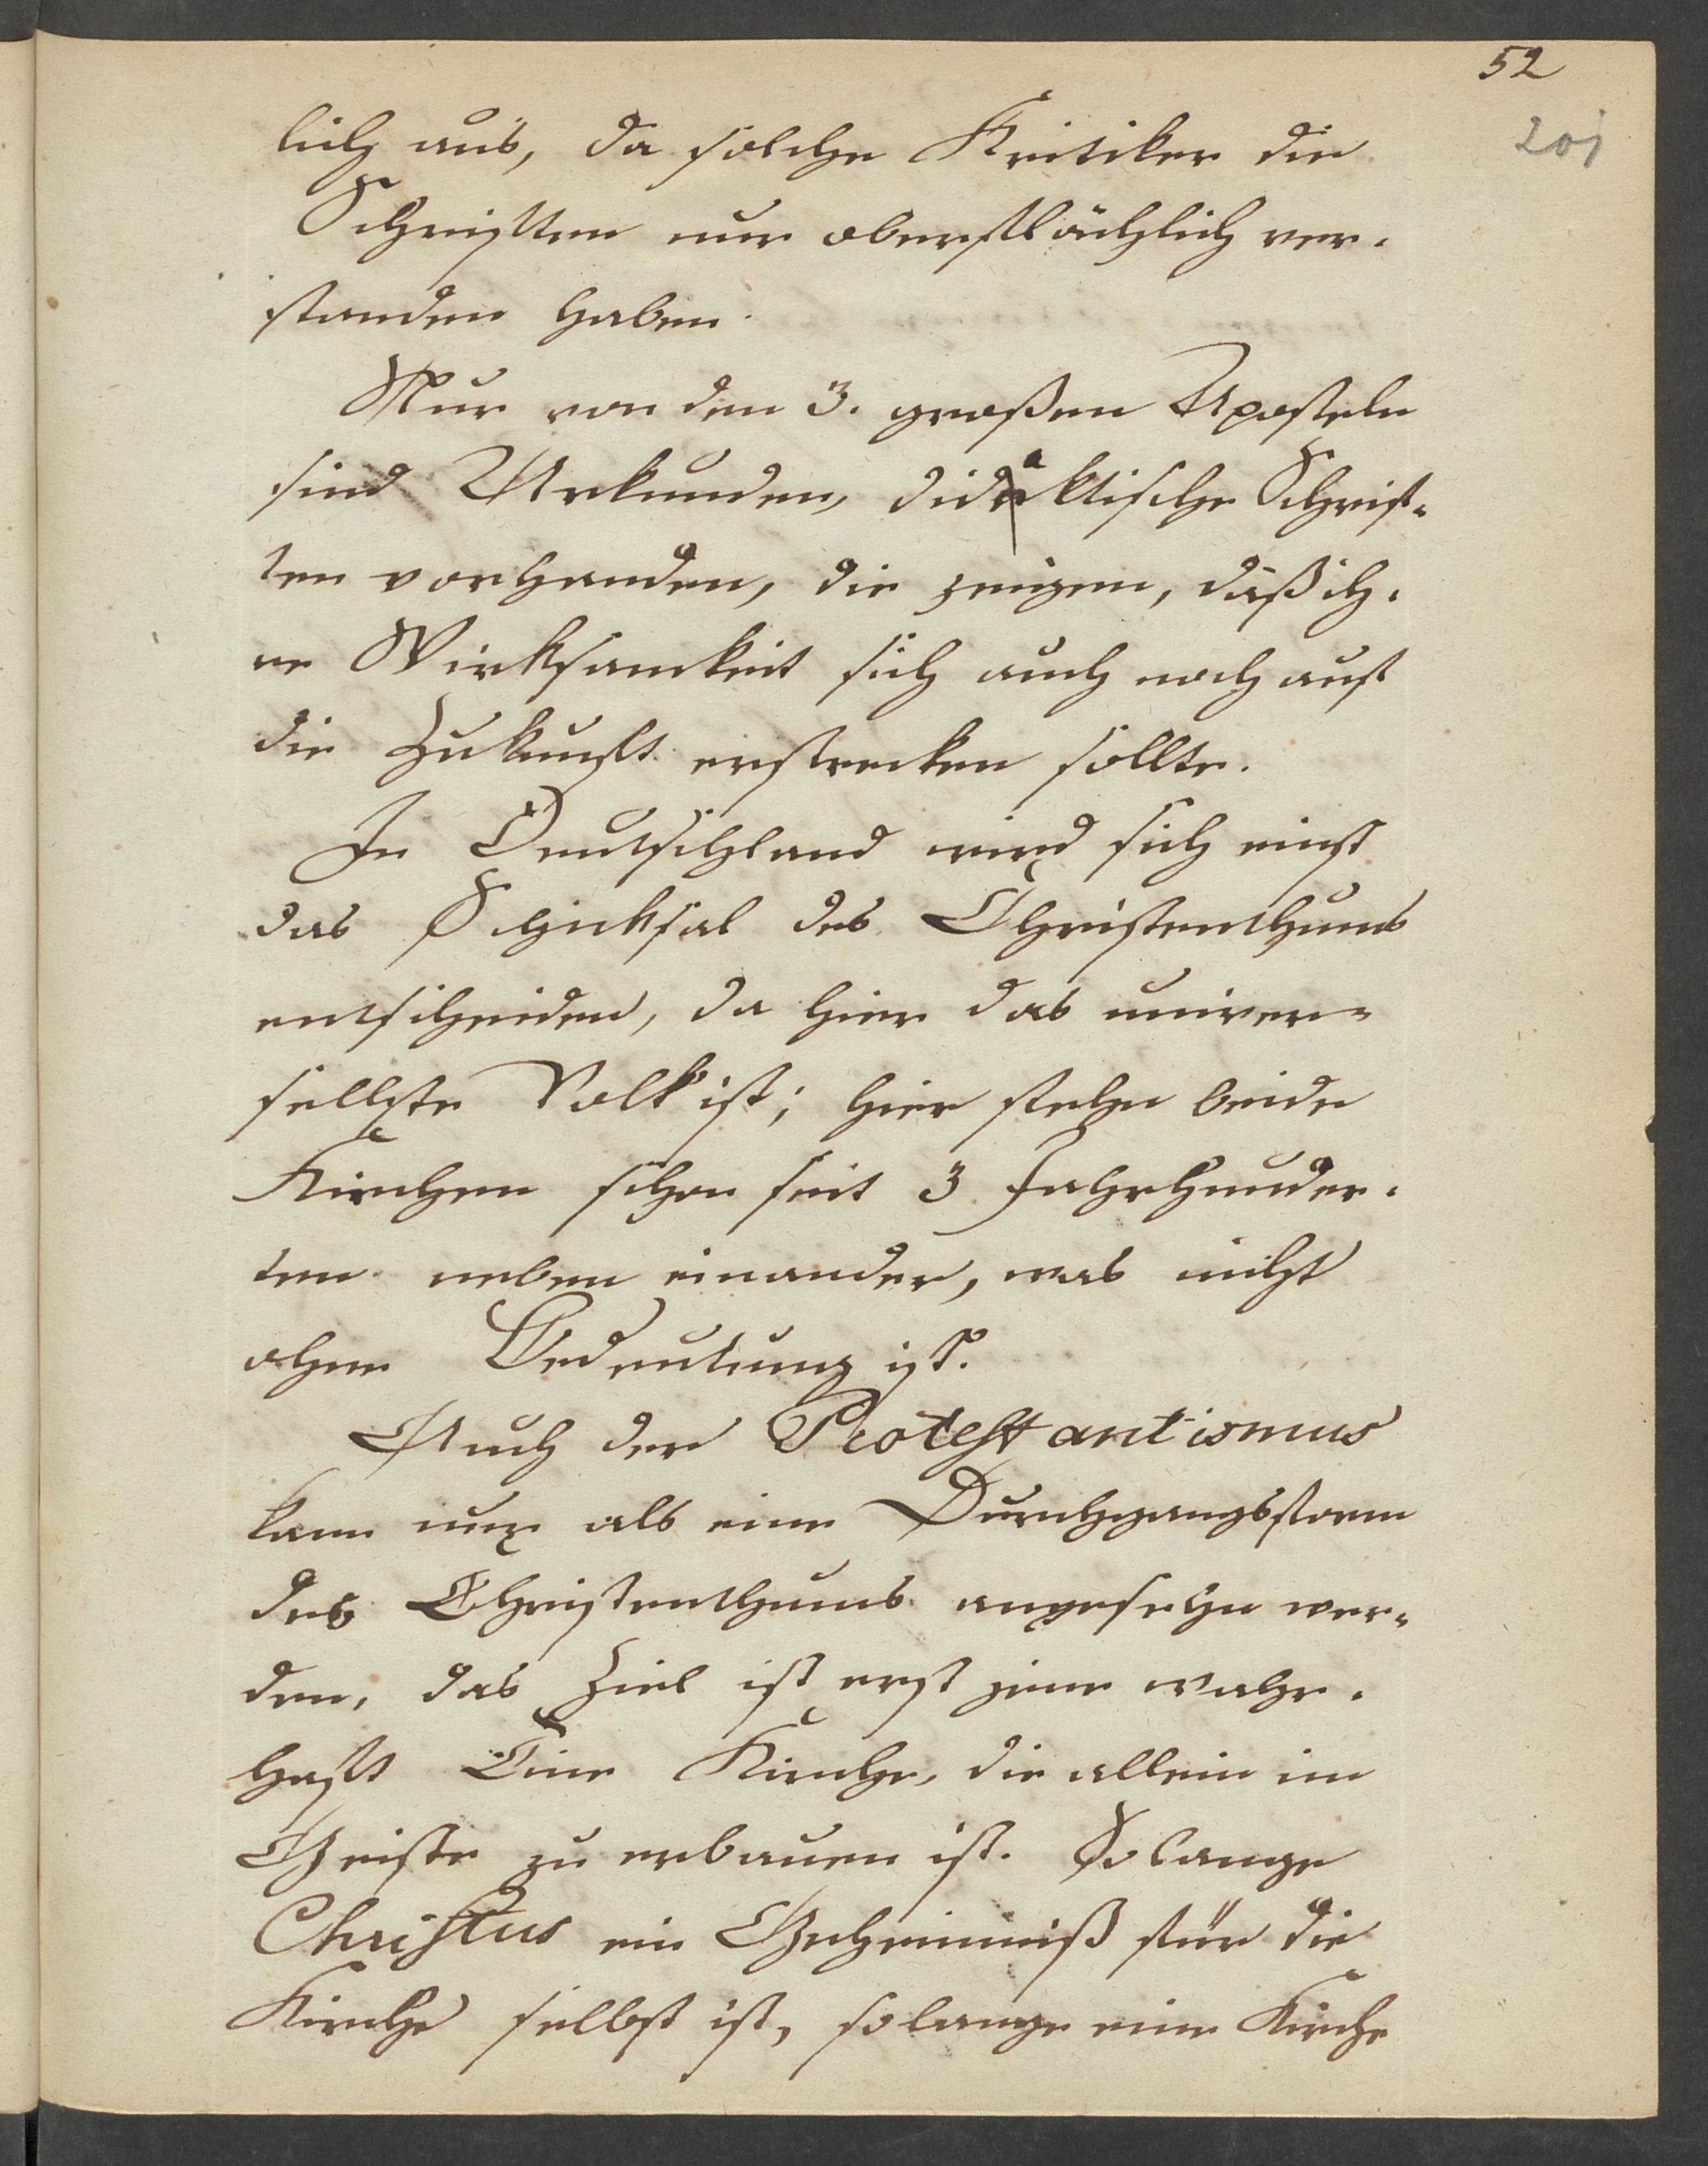 52
201
lich aus, da solche Kritiker die
Schriften nur oberflächlich ver-
standen haben.
Nur von den 3. großen Aposteln
sind Urkunden, didaktische Schrif-
ten vorhanden, die zeigen, daß ih-
re Wirksamkeit sich auch noch auf
die Zukunft erstrecken sollte.
In Deutschland wird sich einst
das Schicksal des Christenthums
entscheiden, da hier das univer-
sellste Volk ist; hier stehn beide
Kirchen schon seit 3 Jahrhunder-
ten neben einander, was nicht
ohne Bedeutung ist.
Auch der Protestantismus
kann nur als eine Durchgangsform
des Christenthums angesehn wer-
den, das Ziel ist erst jene wahr-
haft Eine Kirche, die allein im
Geiste zu erbauen ist. Solange
Christus ein Geheimniß für die
Kirche selbst ist, solange eine Kirche